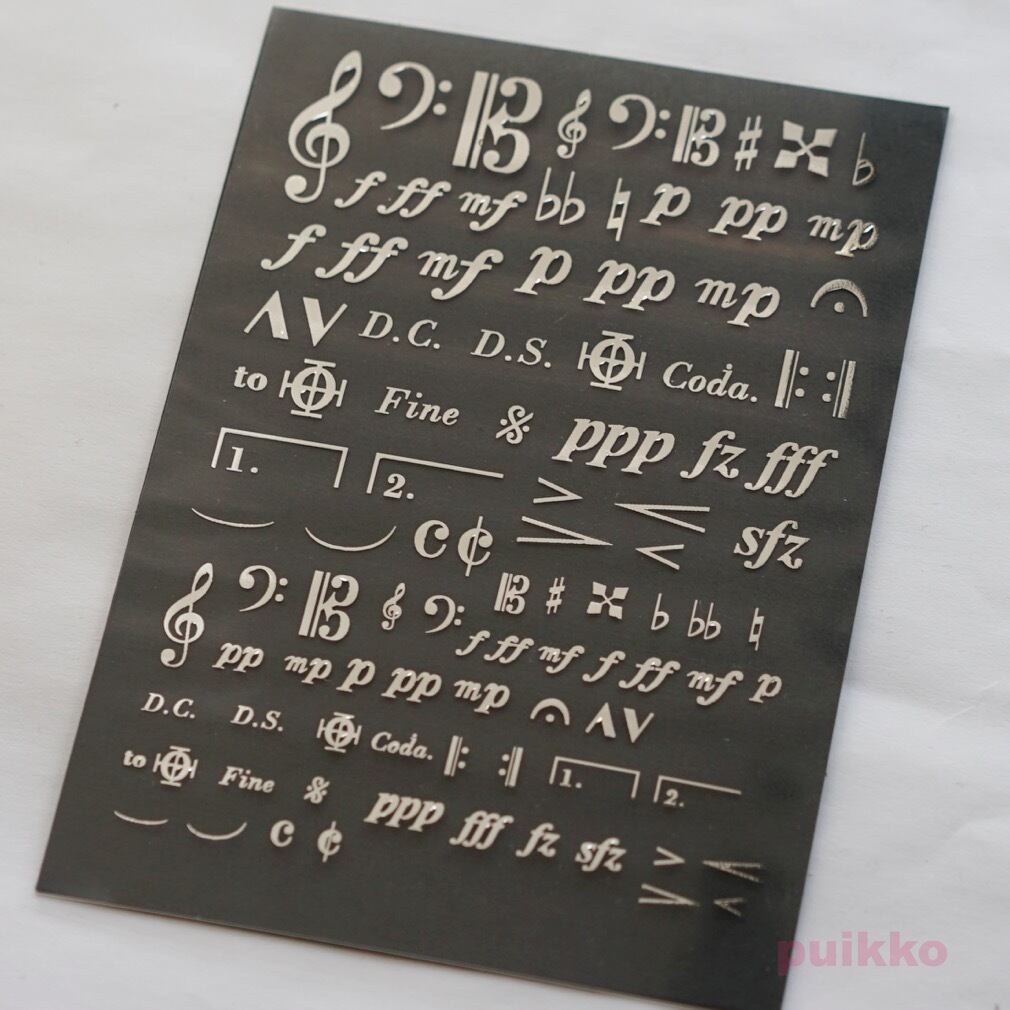 f ff mf p pp mp
f ff mf p pp mp
D.C. D.S. Coda.
to Fine ppp fz fff
1. 2. C ¢ sfz
f ff mf f ff mf p
pp mp p pp mp
D.C. D.S. Coda. 1. 2.
to Fine ppp fff fz sfz
C ¢
puikko